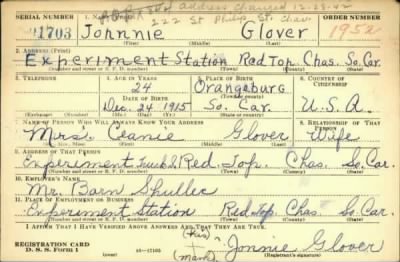 address changed 12-28-42
222 St Philip St. Chas
SERIAL NUMBER 1. NAME ORDER NUMBER
1703 Johnnie Glover 1952
(First) (Middle) (Last)
2. ADDRESS (Print)
Experiment Station Red Top Chas. So. Car.
(Number and street or R. F. D. number) (Town) (County) (State)
3. TELEPHONE 4. AGE IN YEARS 5. PLACE OF BIRTH 6. COUNTRY OF CITIZENSHIP
24 Orangeburg
DATE OF BIRTH (Town or county)
Dec. 24, 1915 So. Car. U.S.A.
(Exchange) (Number) (Mo.) (Day) (Yr.) (State or country)
7. NAME OF PERSON WHO WILL ALWAYS KNOW YOUR ADDRESS 8. RELATIONSHIP OF THAT PERSON
Mrs. Ceanie Glover Wife
(Mr., Mrs., Miss) (First) (Middle) (Last)
9. ADDRESS OF THAT PERSON
Experiment Red. Top. Chas. So. Car.
(Number and street or R. F. D. number) (Town) (County) (State)
10. EMPLOYER'S NAME
Mr. Barn Shuller
11. PLACE OF EMPLOYMENT OR BUSINESS
Experiment Station Red Top. Chas. So. Car.
(Number and street or R. F. D. number) (Town) (County) (State)
I AFFIRM THAT I HAVE VERIFIED ABOVE ANSWERS AND THAT THEY ARE TRUE.
REGISTRATION CARD (his)
D. S. S. Form 1 16-17105 (mark) Jonnie Glover
(Registrant's signature)